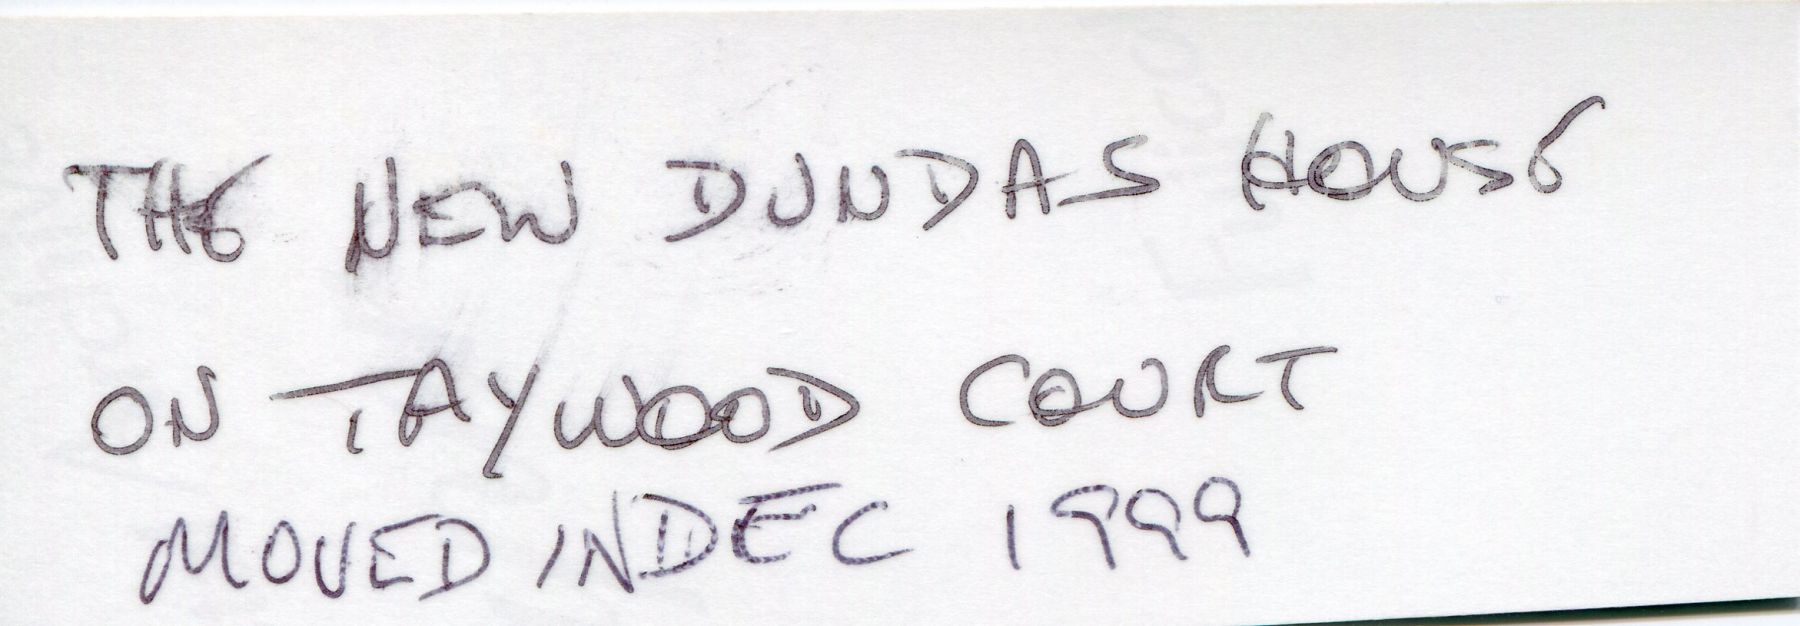 THE NEW DUNDAS HOUSE
ON TAYWOOD COURT
MOVED IN DEC 1999